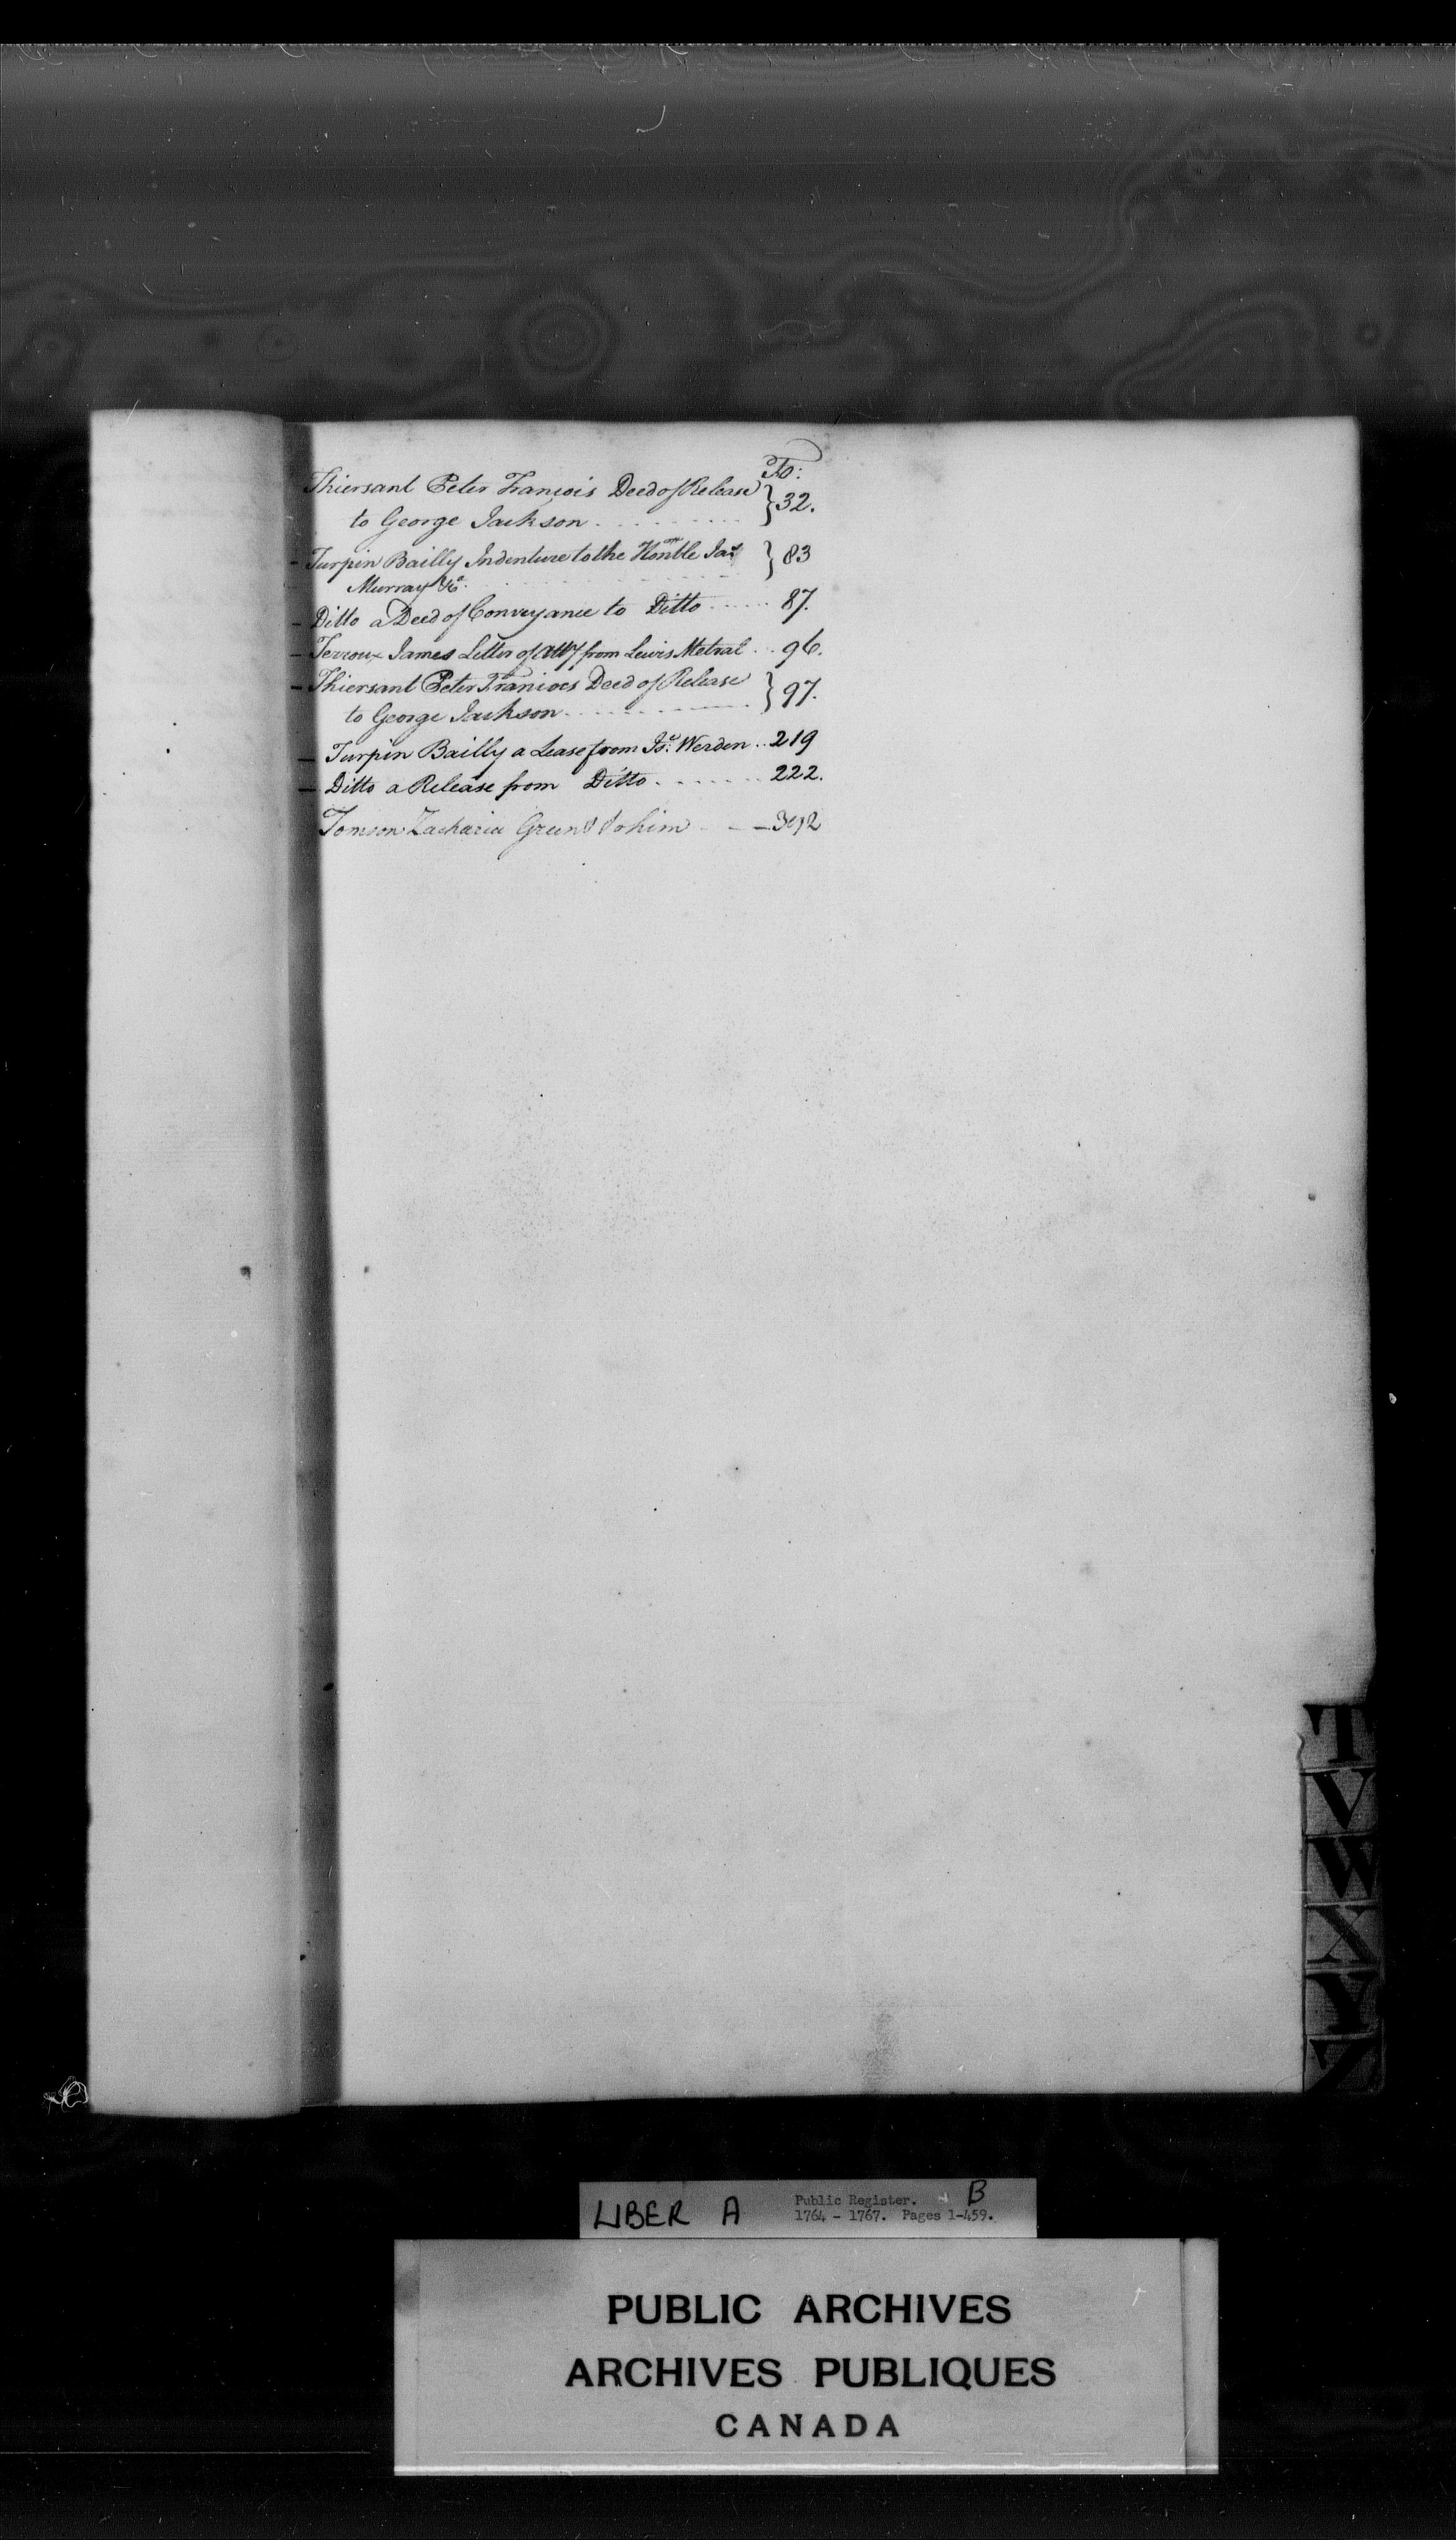 Fo:
Thiersant Peter Francois Deed of Release } 32.
to George Jackson
Turpin Bailly Indenture to the Honble Jas } 83
Murray &c.
Ditto a Deed of Conveyance to Ditto 87.
Terroux James Letter of Atty from Lewis Metral 96.
Thiersant Peter Franioes Deed of Release } 97.
to George Jackson
Turpin Bailly a Lease from Is. Werden 219
Ditto a Release from Ditto 222.
Tomson Zacharia to him 392
T
V
W
X
Y
Z
LIBER A
Public Register. B
1764 - 1767. Pages 1-459.
PUBLIC ARCHIVES
ARCHIVES PUBLIQUES
CANADA